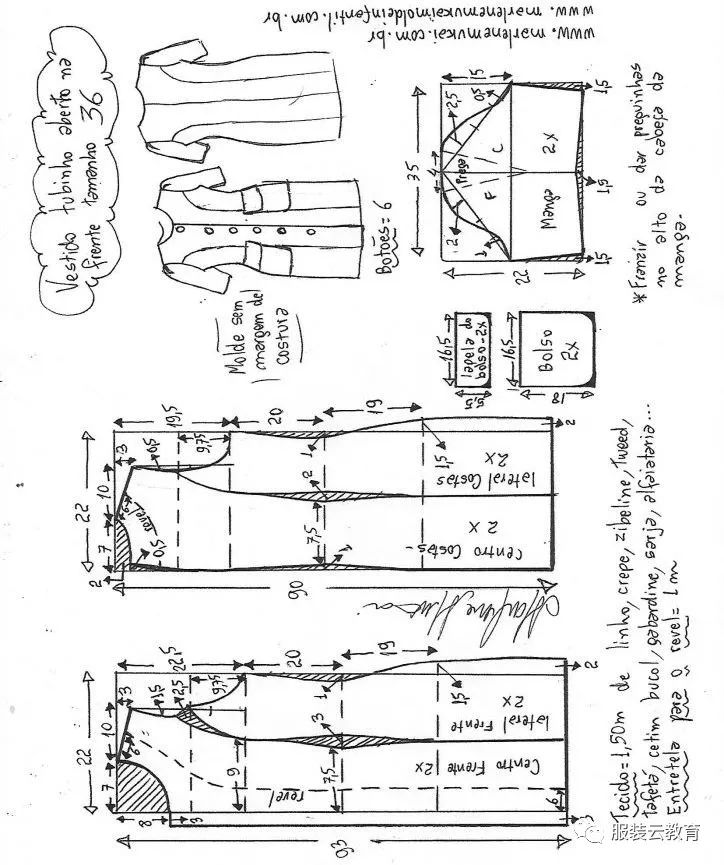 Vestido tubinho aberto na
frente tamanho 36
www.marlenemukai.com.br
www.marlenemukaimoldeinfantil.com.br
Botões=6
Molde sem
margem de
costura
35
15
22
4
2,5
0,5
2
1
Prega
F
C
Manga
2x
1,5
1,5
1,5
*Franzir ou dar preguinhas
no alto da cabeça da
manga.
16,5
5,5
lapela do
bolso-2x
16,5
18
Bolso
2x
22
7
10
3
19,5
20
19
2
0,5
9,75
6
revel
0,5
1
2
7,5
1
1,5
2
lateral Costas
2x
Centro Costas
2x
90
22
7
10
3
22,5
20
19
8
3
1,5
2,5
9,75
6
9
1
3
7,5
1,5
2
lateral Frente
2x
Centro Frente
2x
revel
6
3
93
Tecido=1,50m de linho, crepe, zibeline, Tweed,
tafetá, cetim bucol, gabardine, sarja, alfaiataria...
Entretela para o revel=1m
服装云教育